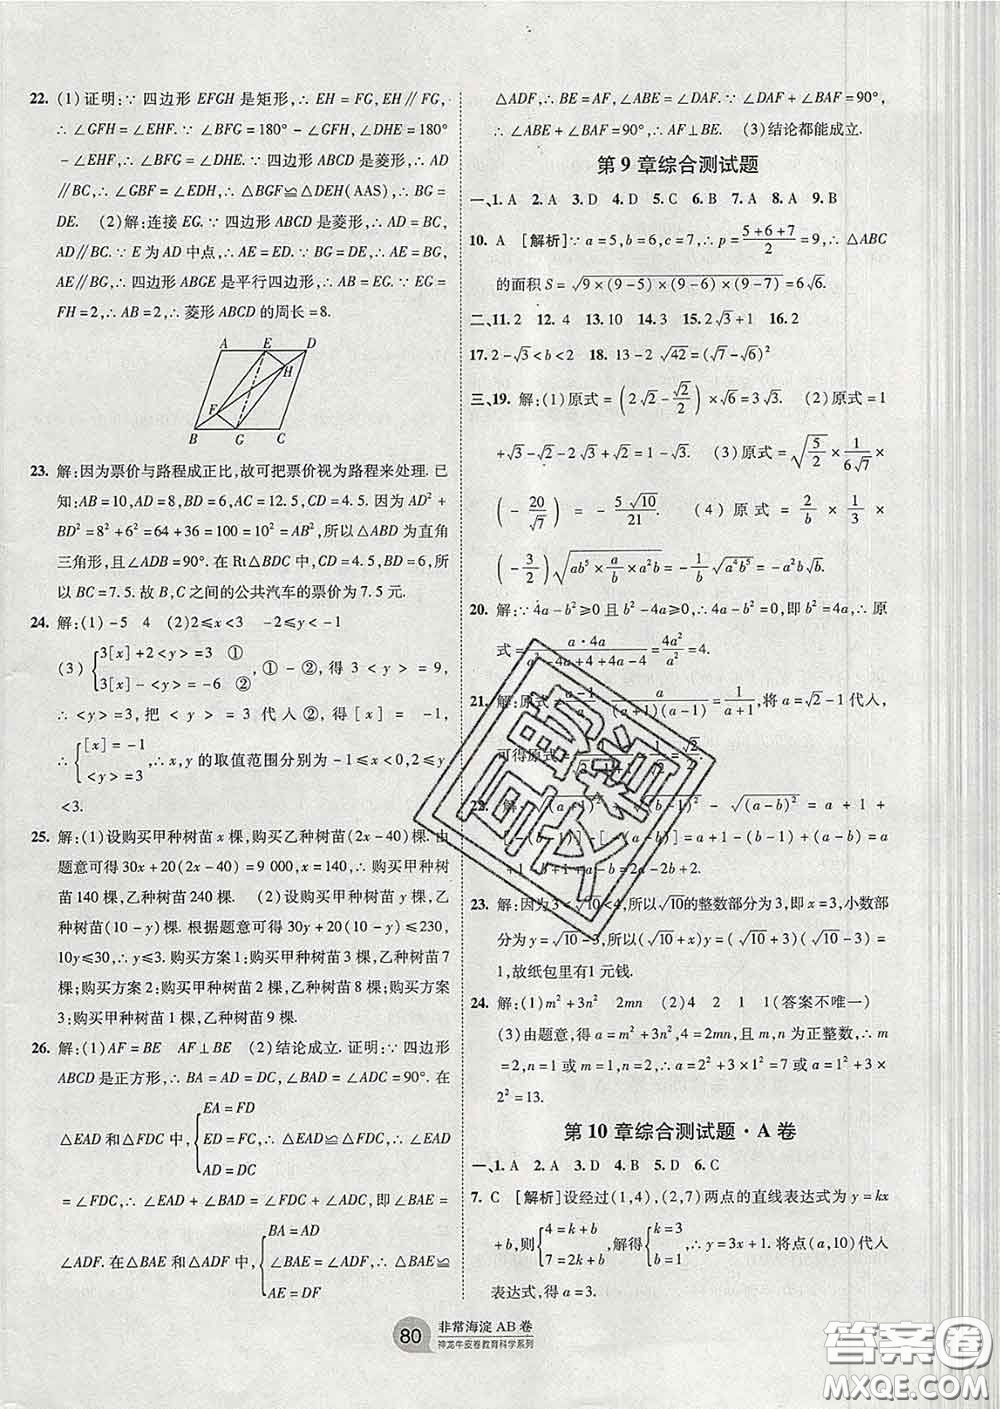 22. (1)证明:∵ 四边形 EFGH 是矩形,∴ EH = FG,EH∥FG,
∴ ∠GFH = ∠EHF. ∵ ∠BFG = 180° - ∠GFH,∠DHE = 180°
- ∠EHF,∴ ∠BFG = ∠DHE. ∵ 四边形 ABCD 是菱形,∴ AD
∥BC,∴ ∠GBF = ∠EDH,∴ △BGF≌△DEH(AAS),∴ BG =
DE. (2)解:连接 EG. ∵ 四边形 ABCD 是菱形,∴ AD = BC,
AD∥BC. ∵ E 为 AD 中点,∴ AE = ED. ∵ BG = DE,∴ AE =
BG,∴ 四边形 ABGE 是平行四边形,∴ AB = EG. ∵ EG =
FH = 2,∴ AB = 2,∴ 菱形 ABCD 的周长 = 8.
A E D
H
F
B G C
23. 解:因为票价与路程成正比,故可把票价视为路程来处理. 已
知:AB = 10,AD = 8,BD = 6,AC = 12.5,CD = 4.5. 因为 AD² +
BD² = 8² + 6² = 64 + 36 = 100 = 10² = AB²,所以 △ABD 为直角
三角形,且∠ADB = 90°. 在 Rt△BDC 中,CD = 4.5,BD = 6,所
以 BC = 7.5. 故 B,C 之间的公共汽车的票价为 7.5 元.
24. 解:(1) -5 4 (2)2≤x<3 -2≤y<-1
(3) {3[x] + 2<y> = 3 ①
3[x] - <y> = -6 ②, ① - ②,得 3<y> = 9,
∴ <y> = 3,把 <y> = 3 代人②,得 [x] = -1,
∴ {[x] = -1
<y> = 3, ∴ x,y 的取值范围分别为 -1≤x<0,2≤y
<3.
25. 解:(1)设购买甲种树苗 x 棵,购买乙种树苗(2x - 40)棵. 由
题意可得 30x + 20(2x - 40) = 9 000,x = 140,∴ 购买甲种树
苗 140 棵,乙种树苗 240 棵. (2)设购买甲种树苗 y 棵,乙种
树苗(10 - y)棵. 根据题意可得 30y + 20(10 - y)≤230,
10y≤30,∴ y≤3. 购买方案 1:购买甲种树苗 3 棵,乙种树苗 7
棵;购买方案 2:购买甲种树苗 2 棵,乙种树苗 8 棵;购买方案
3:购买甲种树苗 1 棵,乙种树苗 9 棵.
26. 解:(1)AF = BE AF⊥BE (2)结论成立. 证明:∵ 四边形
ABCD 是正方形,∴ BA = AD = DC,∠BAD = ∠ADC = 90°. 在
△EAD 和 △FDC 中, {EA = FD
ED = FC, ∴ △EAD≌△FDC,∴ ∠EAD
AD = DC
= ∠FDC,∴ ∠EAD + ∠BAD = ∠FDC + ∠ADC,即∠BAE =
∠ADF. 在 △BAE 和 △ADF 中, {BA = AD
∠BAE = ∠ADF, ∴ △BAE≌
AE = DF
△ADF,∴ BE = AF,∠ABE = ∠DAF. ∵ ∠DAF + ∠BAF = 90°,
∴ ∠ABE + ∠BAF = 90°,∴ AF⊥BE. (3)结论都能成立.
第 9 章综合测试题
一、1. A 2. A 3. D 4. D 5. C 6. B 7. A 8. A 9. B
10. A [解析]∵ a = 5,b = 6,c = 7,∴ p = (5+6+7)/2 = 9,∴ △ABC
的面积 S = √(9×(9-5)×(9-6)×(9-7)) = 6√6.
二、11. 2 12. 4 13. 10 14. 3 15. 2√3 + 1 16. 2
17. 2 - √3 < b < 2 18. 13 - 2√42 = (√7 - √6)²
三、19. 解:(1)原式 = (2√2 - √2/2) × √6 = 3√3. (2)原式 = 1
+ √3 - √3 - 2√3 + √3 = 1 - √3. (3)原式 = √(5/2) × 1/(6√7) ×
(-20/√7) = -5√10/21. (4)原式 = 2/b × 1/3 ×
(-3/2)√(ab⁵ × a/b × a²b) = -1/b √(a⁴b⁵) = -a²b√b.
20. 解:∵ 4a - b²≥0 且 b² - 4a≥0,∴ b² - 4a = 0,即 b² = 4a,∴ 原
式 = a·4a/(a² - 4a + 4 + 4a - 4) = 4a²/a² = 4.
21. 解:原式 = a/(a+1)(a-1) = 1/(a+1),将 a = √2 - 1 代人,
可得原式 = = √2/2.
22. 解 - √(a-b)² = a + 1 +
- (b-1) - [-(a-b)] = a + 1 - (b-1) + (a-b) = a
- b = 2a - 2b + 2.
23. 解:因为 3<√10<4,所以√10的整数部分为 3,即 x = 3,小数部
分为 y = √10 - 3,所以(√10 + x)y = (√10 + 3)(√10 - 3) =
1,故纸包里有1 元钱.
24. 解:(1)m² + 3n² 2mn (2)4 2 1 1 (答案不唯一)
(3)由题意,得 a = m² + 3n²,4 = 2mn,且 m,n 为正整数,∴ m
= 2,n = 1 或 m = 1,n = 2,∴ a = 2² + 3×1² = 7 或 a = 1² + 3×
2² = 13.
第 10 章综合测试题·A 卷
一、1. A 2. A 3. D 4. B 5. D 6. C
7. C [解析]设经过(1,4),(2,7)两点的直线表达式为 y = kx
+ b,则 {4 = k + b
7 = 2k + b, 解得 {k = 3
b = 1, ∴ y = 3x + 1. 将点(a,10)代人
表达式,得 a = 3.
80 非常海淀 AB 卷
神龙牛皮卷教育科学系列
答案圈
MXQE.COM